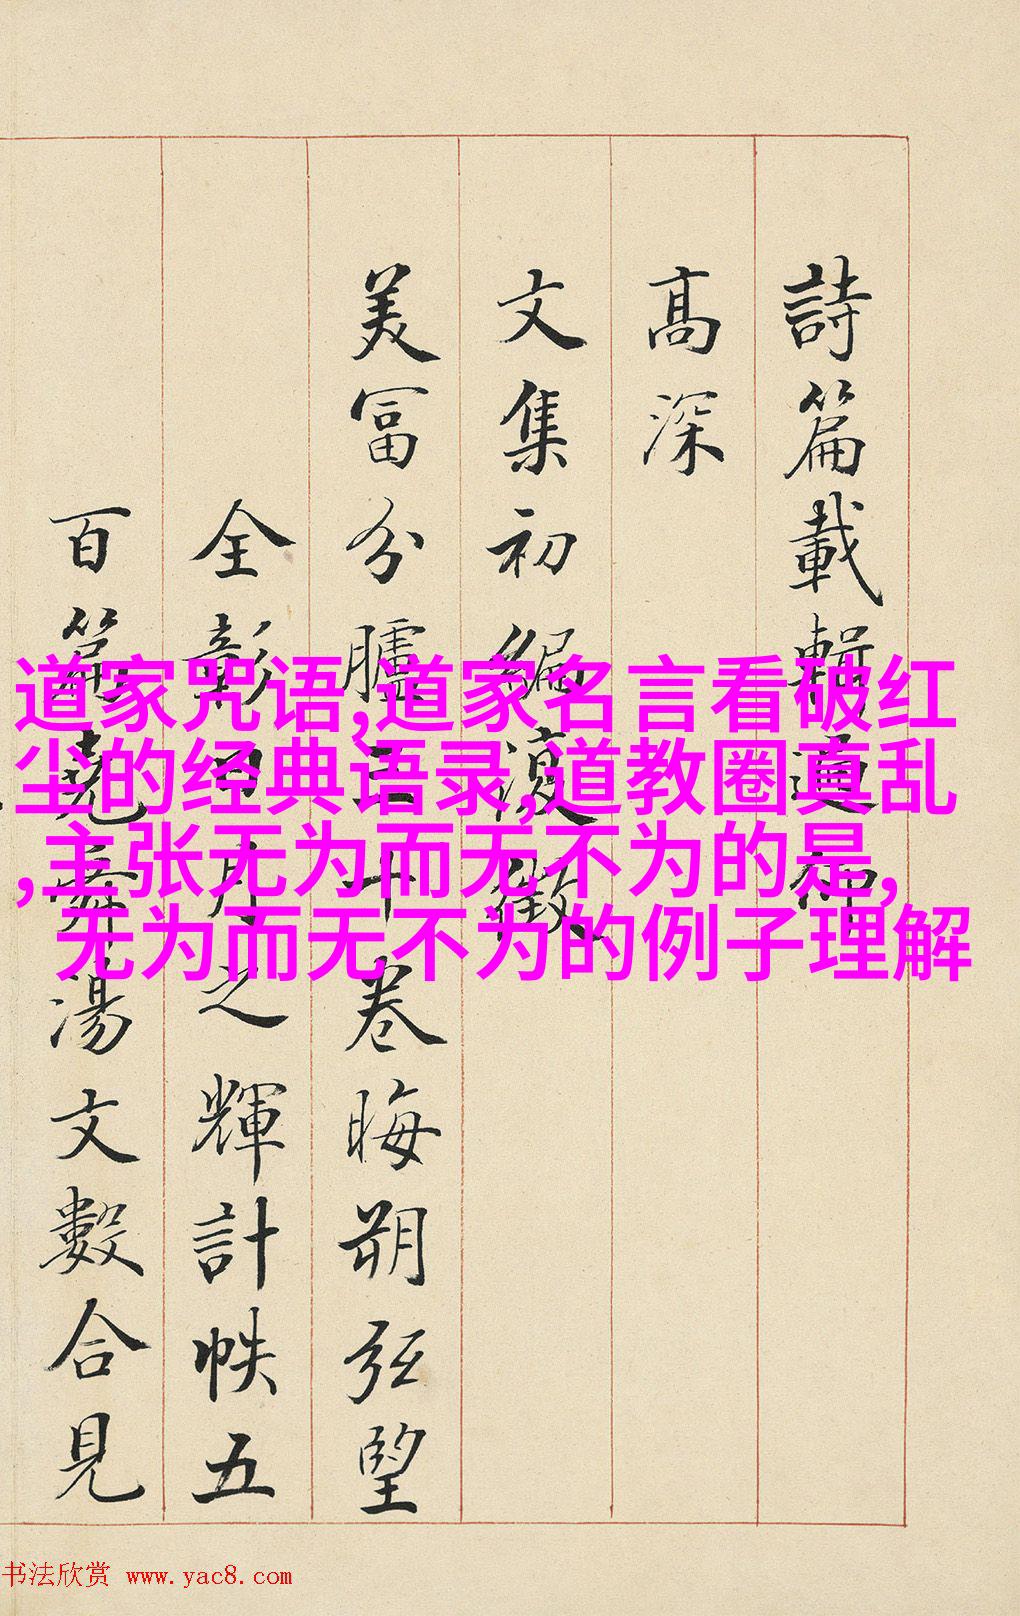 詩篇載輯遹仰
高深
文集初編復徵
美富分臚三十卷晦朔弦望
全彰日月之輝計帙五
百篇堯舜湯文數合見
道家咒语,道家名言看破红
尘的经典语录,道教圈真乱
,主张无为而无不为的是,
无为而无不为的例子理解
书法欣赏 www.yac8.com